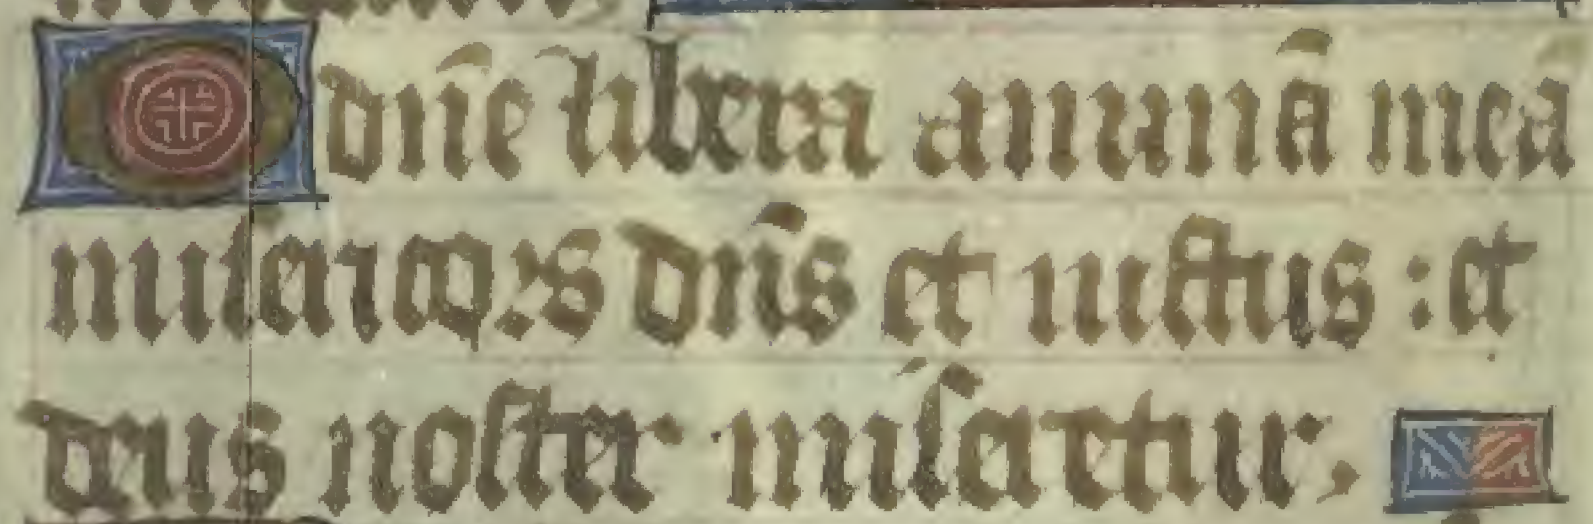 O dñe libera animã meã
misericors dñs et iustus : et
deus noster miseretur,